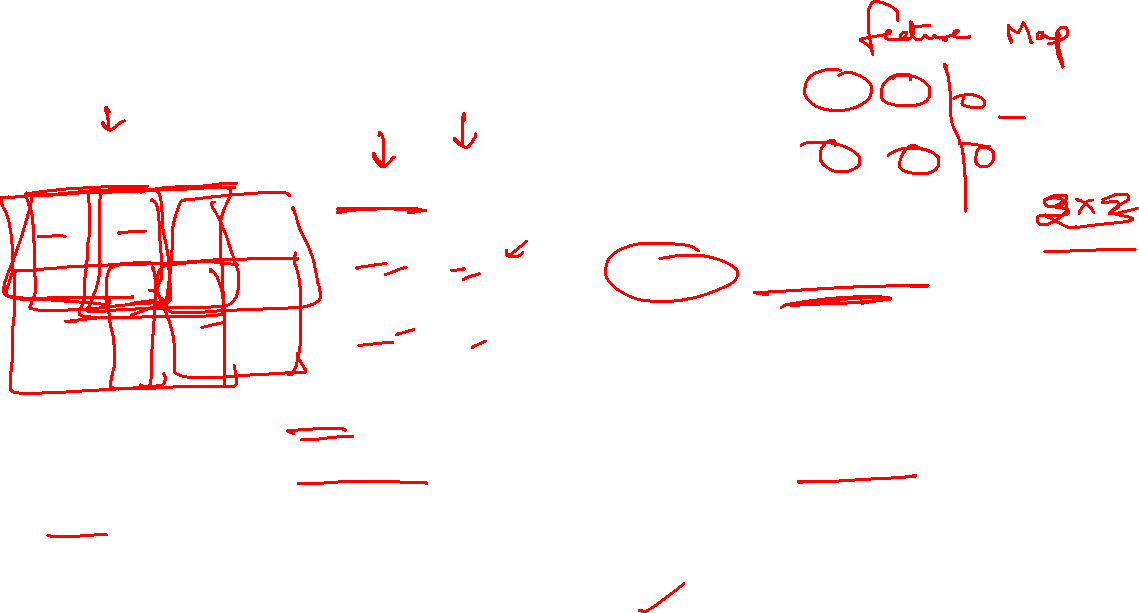 feature Map
2×2